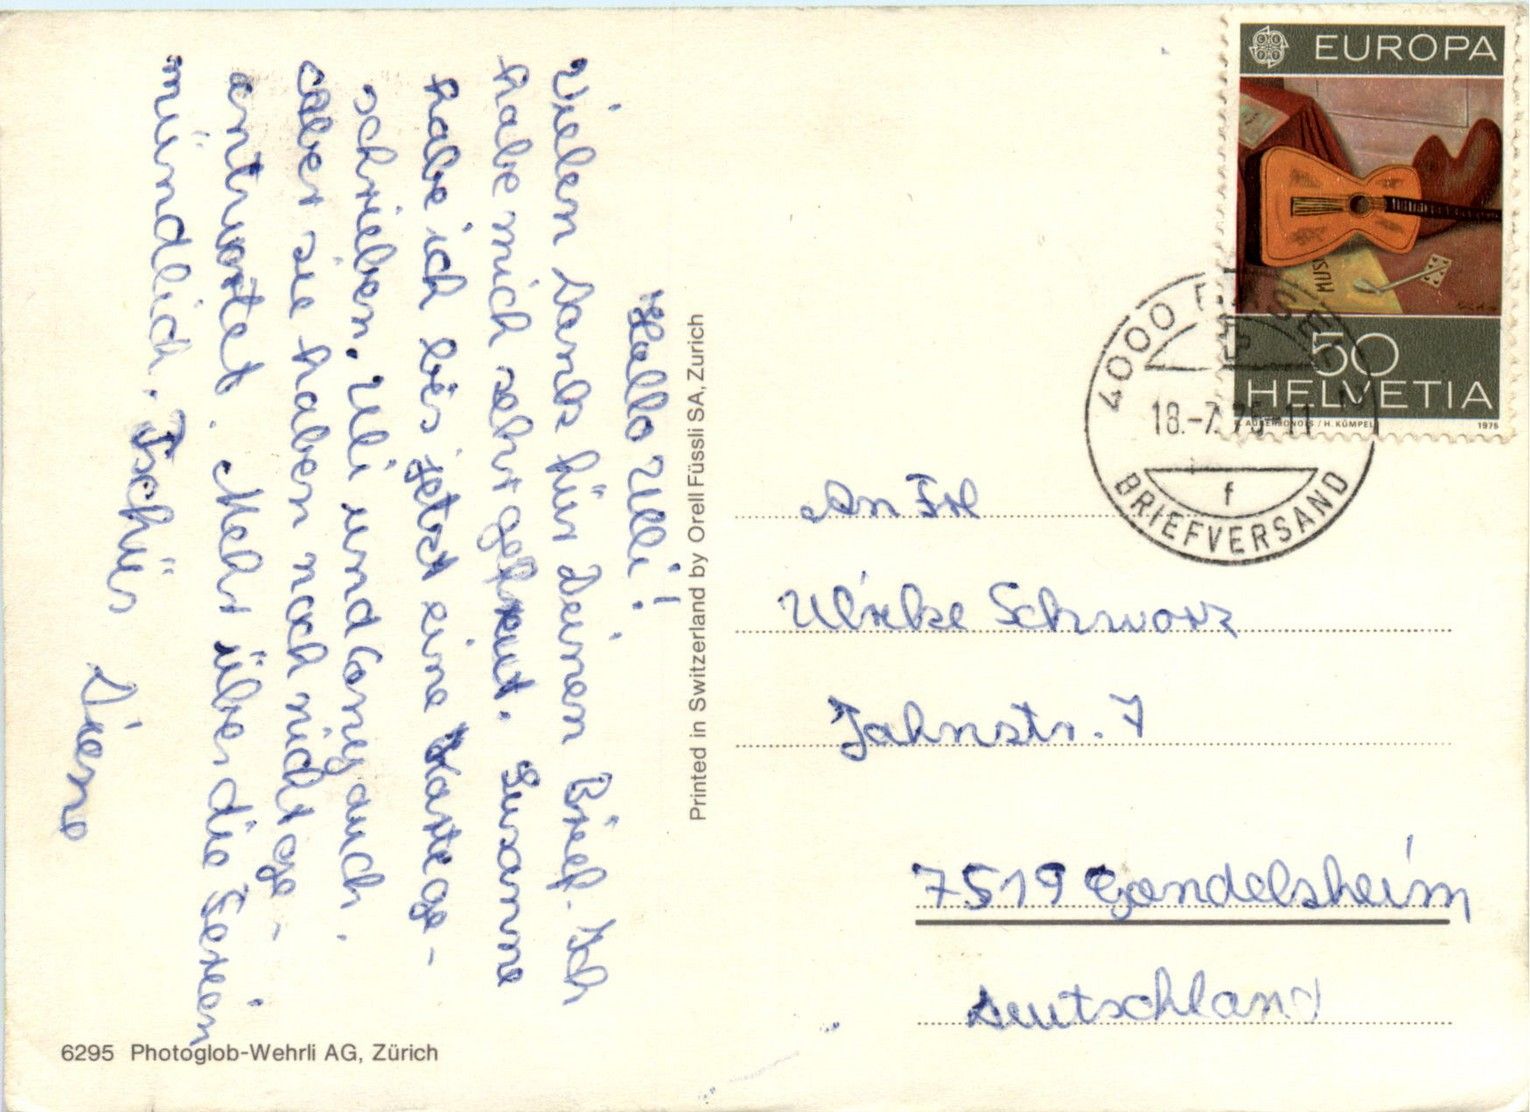 Hallo Ulli!
Vielen Dank für Deinen Brief. Ich
habe mich sehr gefreut. Susanne
habe ich bis jetzt eine Karte ge-
schrieben. Uli und Cony auch.
aber sie haben noch nicht ge-
antwortet. Mehr über die Ferien
mündlich. Tschüs
Printed in Switzerland by Orell Füssli SA, Zurich
6295 Photoglob-Wehrli AG, Zürich
EUROPA
MUSI
50
HELVETIA
H. KÜMPEL
1975
4000 BASEL 2
18.-7.75-11
f
BRIEFVERSAND
An Frl
Ulrike Schwarz
Jahnstr. 7
7519 Gondelsheim
Deutschland